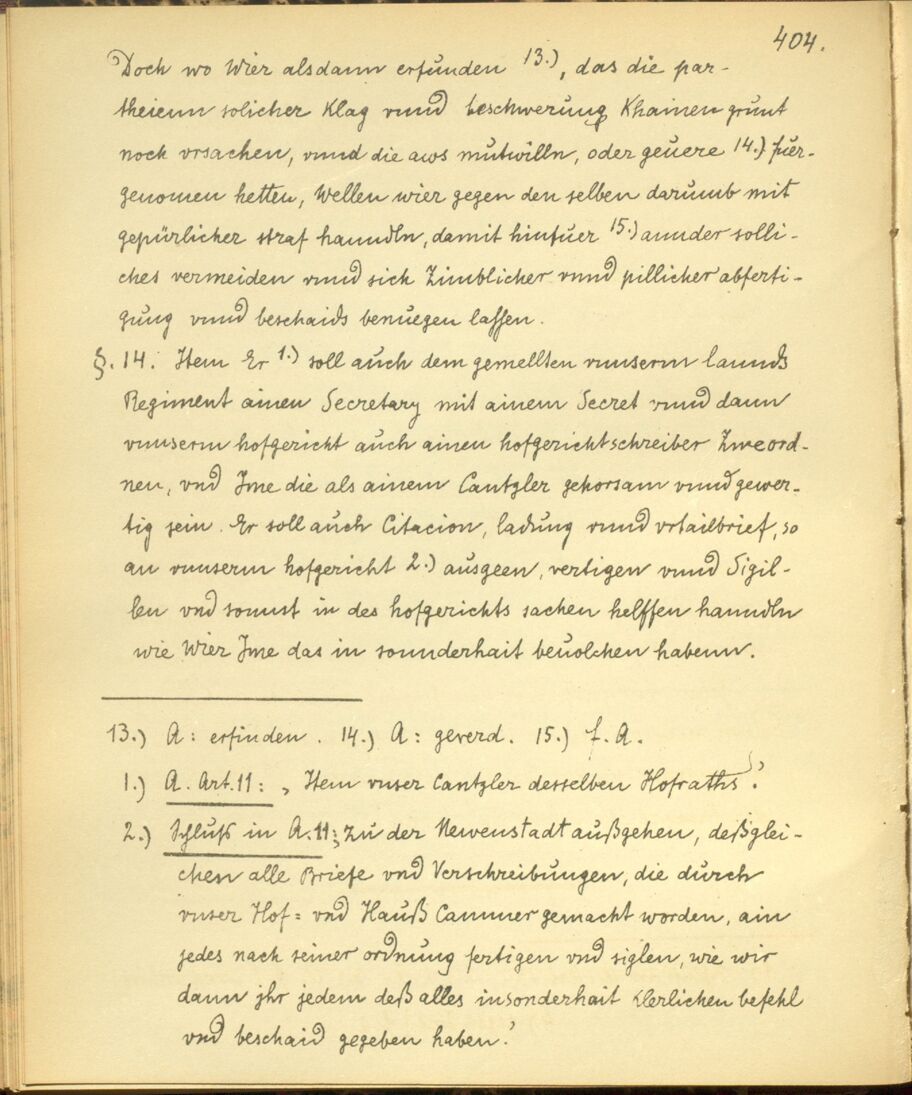 404.
Doch wo Wier alsdann erfunden 13.), das die par-
theienn solicher Klag vnnd beschwerung Khainen grunt
noch vrsachen, vnnd die aws mutwilln, oder geuere 14.) fuer-
genomen hetten, Wellen wier gegen den selben darumb mit
gepürlicher straf hanndln, damit hinfuer 15.) annder solli-
ches vermeiden vnnd sich Zimblicher vnnd pillicher abferti-
gung vnnd beschaids benuegen lassen.
§. 14. Item Er 1.) soll auch dem gemellten vnnserm lannds
Regiment ainen Secretary mit ainem Secret vnnd dann
vnnserm hofgericht auch ainen hofgerichtschreiber Zweord-
nen, vnd Jme die als ainem Cantzler gehorsam vnnd gewer-
tig sein. Er soll auch Citacion, ladung vnnd vrtailbrief, so
an vnnserm hofgericht 2.) ausgeen, vertigen vnnd Sigil-
len vnd sonnst in des hofgerichts sachen helffen hanndln
wie Wier Jme das in sonnderhait beuolchen habenn.
13.) A: erfinden. 14.) A: geverd. 15.) f. A.
1.) A. Art. 11: „Item vnser Cantzler desselben Hofraths".
2.) Schluß in A. 11: zu der Newenstadt außgehen, deßglei-
chen alle Briefe vnd Verschreibungen, die durch
vnser Hof= vnd Hauß Cammer gemacht worden, ain
jedes nach seiner ordnung fertigen vnd siglen, wie wir
dann jhr jedem deß alles insonderhait klerlichen befehl
vnd beschaid gegeben haben."